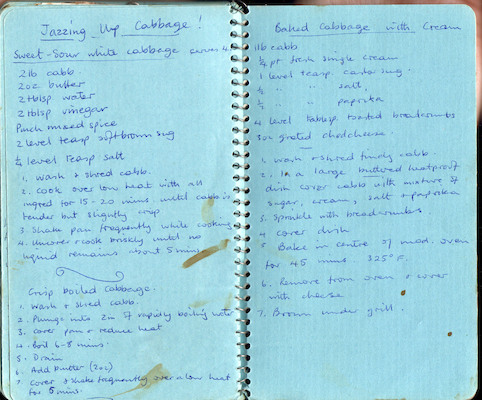 Jazzing Up Cabbage!
Sweet-Sour white cabbage serves 4.
2lb cabb
2oz butter
2 tblsp water
2 tblsp vinegar
Pinch mixed spice
2 level teasp soft brown sug
½ level teasp salt
1. Wash & shred cabb.
2. Cook over low heat with all
ingred for 15-20 mins until cabb is
tender but slightly crisp
3. Shake pan frequently while cooking
4. Uncover & cook briskly until no
liquid remains about 5 mins
Crisp boiled cabbage.
1. Wash & shred cabb.
2. Plunge into 2in of rapidly boiling water
3. Cover pan & reduce heat
4. Boil 6-8 mins.
5. Drain
6. Add butter (2oz)
7. Cover & shake frequently over a low heat
for 5 mins.
Baked Cabbage with Cream
1lb cabb
¼ pt fresh single cream
1 level teasp. castor sug.
½ " " salt,
½ " " paprika
4 level tablesp toasted breadcrumbs
3oz grated chedcheese.
1. Wash & shred finely cabb.
2. In a large buttered heatproof
dish cover cabb with mixture of
sugar, cream, salt & paprika
3. Sprinkle with breadcrumbs.
4 cover dish
5 Bake in centre of mod. oven
for 45 mins 325°F.
6. Remove from oven & cover
with cheese
7. Brown under grill.